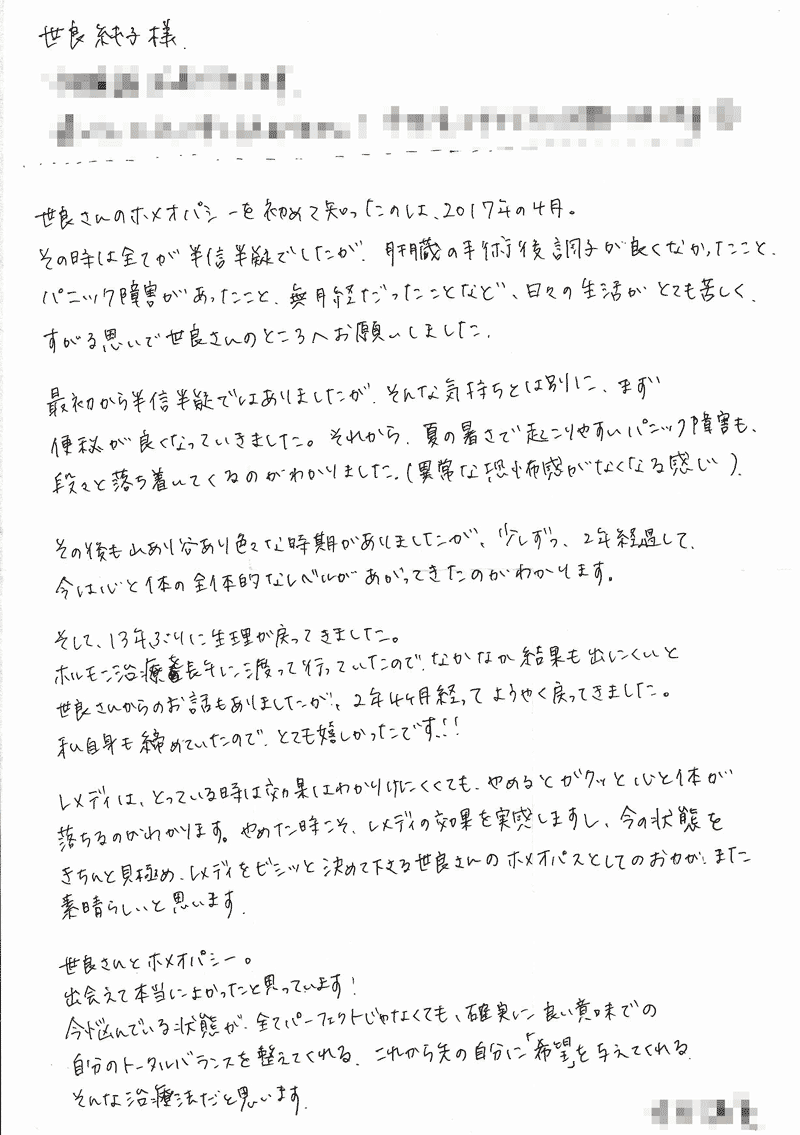 世良純子様.
世良さんのホメオパシーを初めて知ったのは、2017年の4月。
その時は全てが半信半疑でしたが、肝臓の手術後調子が良くなかったこと、
パニック障害があったこと、無月経だったことなど、日々の生活がとても苦しく、
すがる思いで世良さんのところへお願いしました.
最初から半信半疑ではありましたが、そんな気持ちとは別に、まず
便秘が良くなっていきました。それから、夏の暑さで起こりやすいパニック障害も、
段々と落ち着いてくるのがわかりました.(異常な恐怖感がなくなる感じ).
その後も山あり谷あり色々な時期がありましたが、少しずつ、2年経過して、
今は心と体の全体的なレベルがあがってきたのがわかります。
そして、13年ぶりに生理が戻ってきました。
ホルモン治療長年に渡って行っていたので、なかなか結果も出にくいと
世良さんからのお話もありましたが、2年4ヶ月経ってようやく戻ってきました。
私自身も締めていたので、とても嬉しかったです!!
レメディは、とっている時は効果はわかりけにくくても、やめるとガクッと心と体が
落ちるのがわかります。やめた時こそ、レメディの効果を実感しますし、今の状態を
きちんと見極め、レメディをビシッと決めて下さる世良さんのホメオパスとしてのお力が、また
素晴らしいと思います.
世良さんとホメオパシー。
出会えて本当によかったと思っています!
今悩んでいる状態が、全てパーフェクトじゃなくても、確実に良い意味での
自分のトータルバランスを整えてくれる、これから先の自分に「希望」を与えてくれる
そんな治療法だと思います.